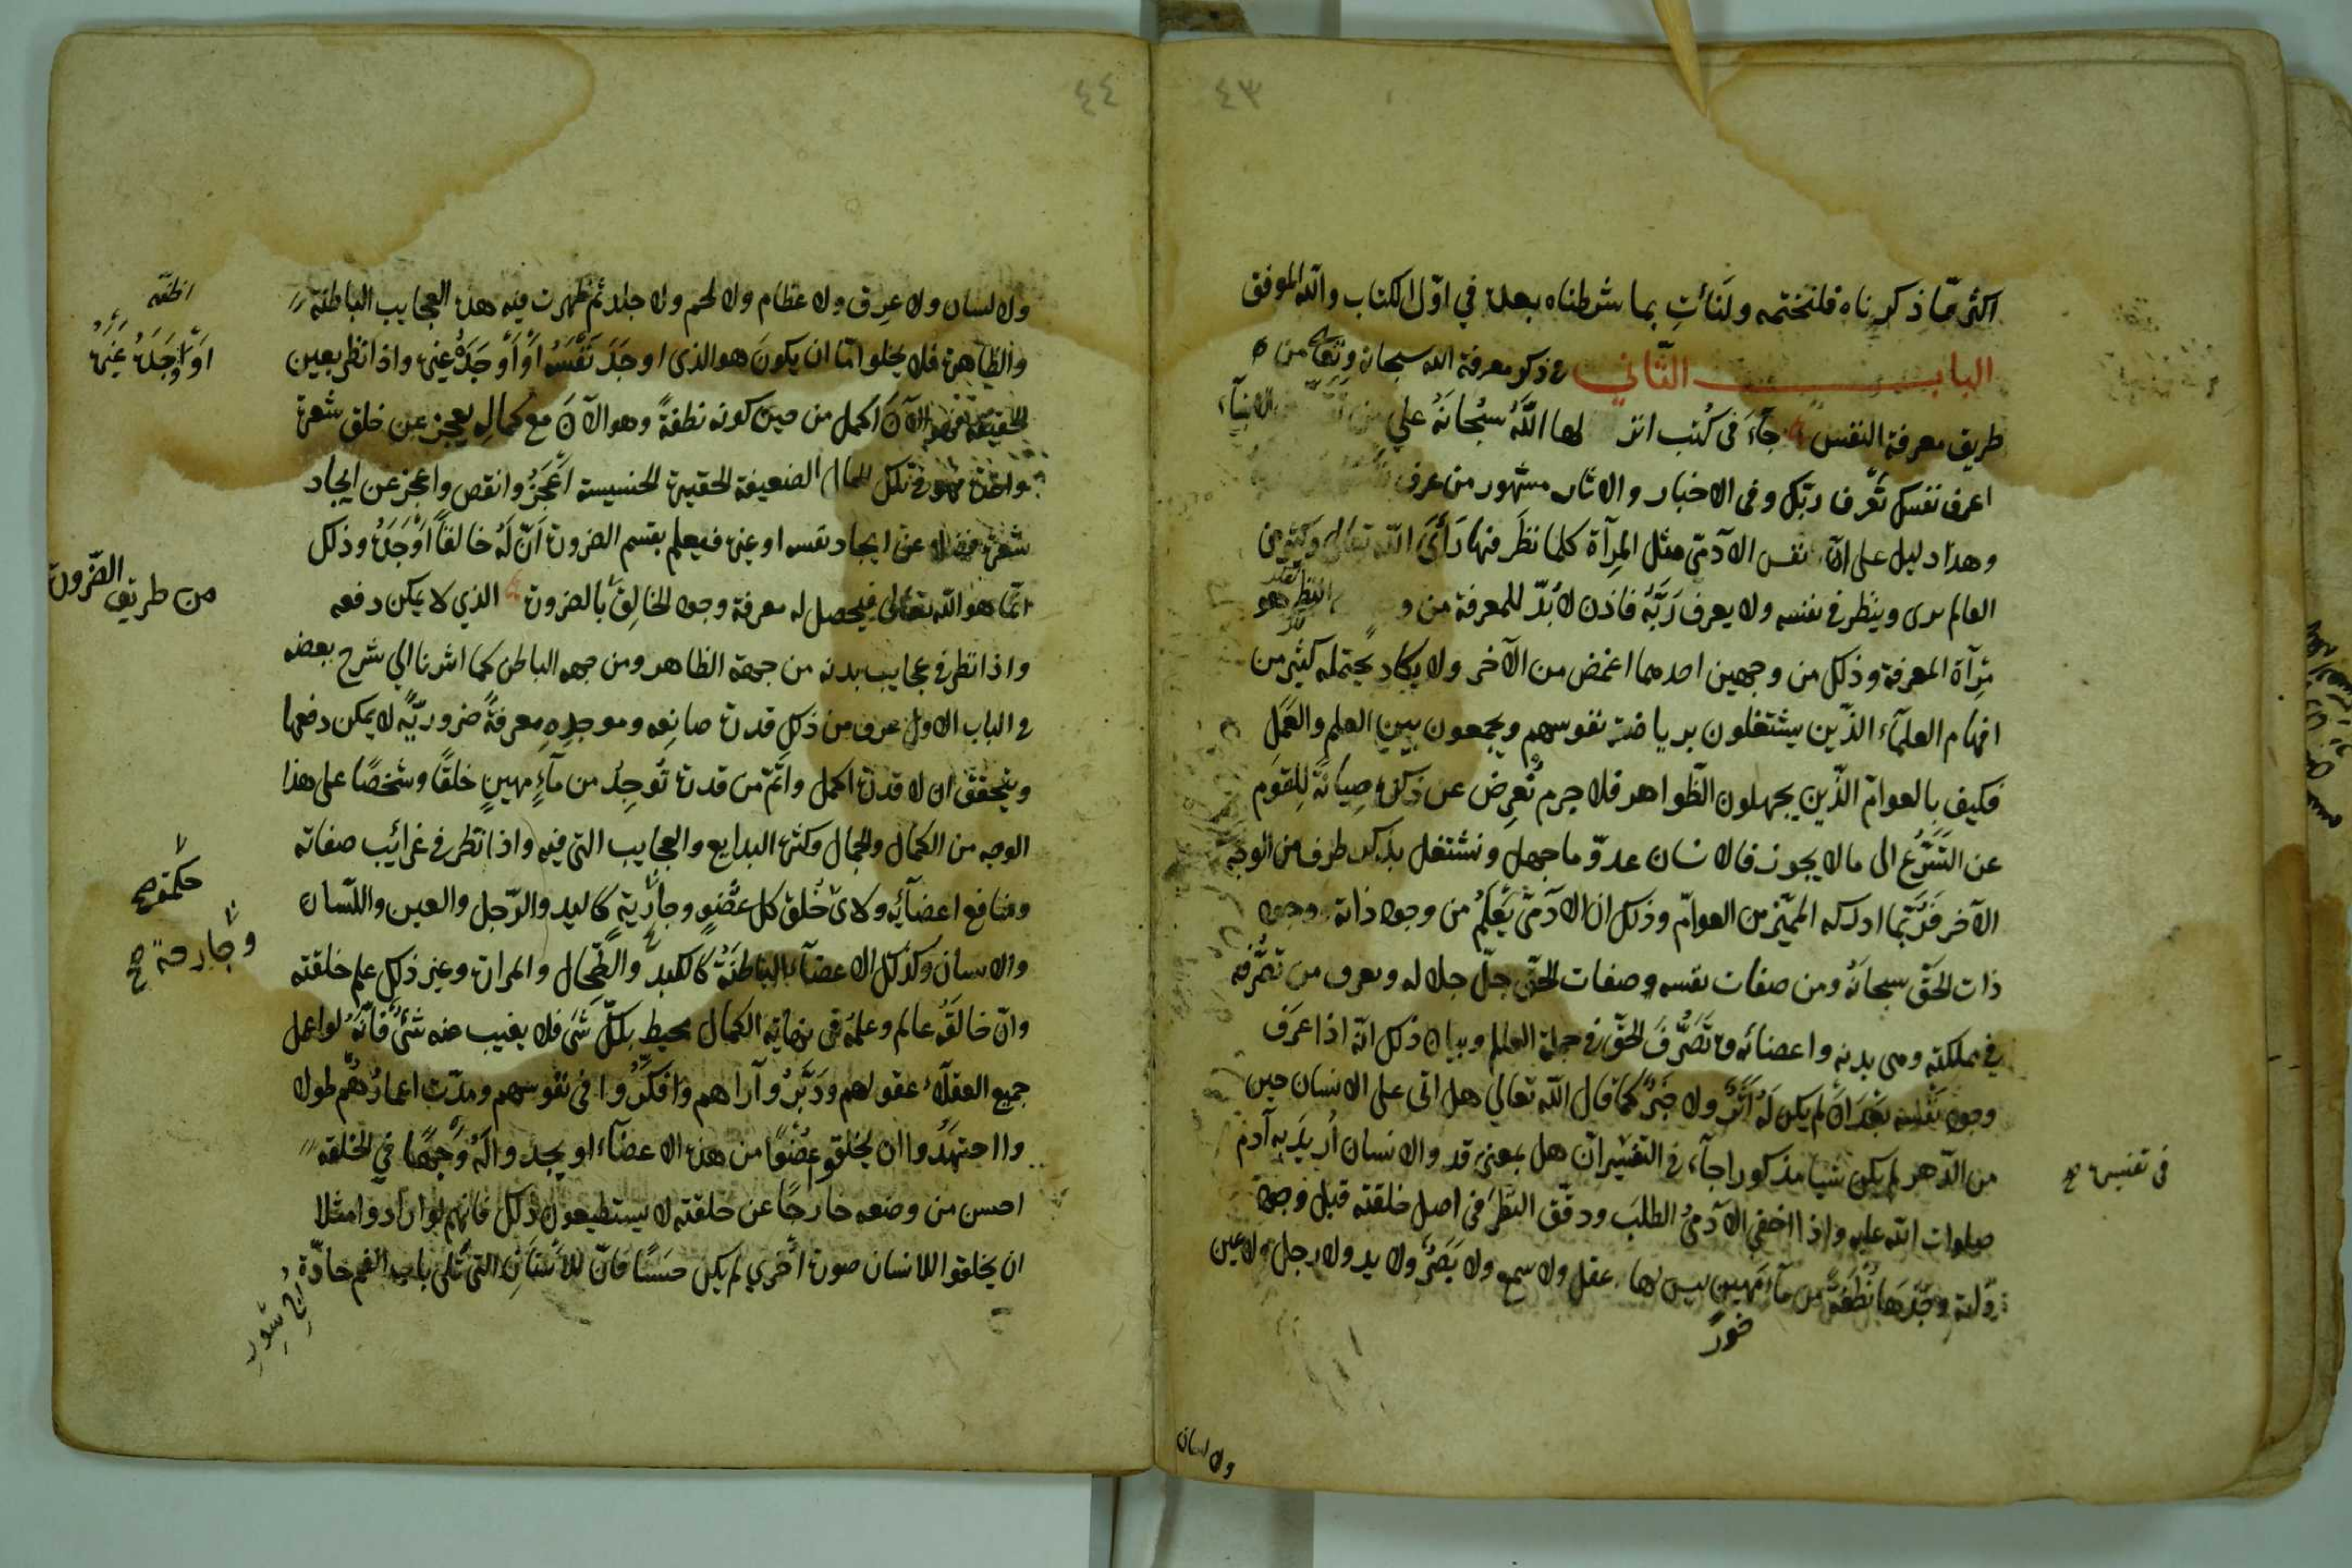 ٤٣
اكثر ممّا ذكرناه فلنختمه ولنأتِ بما شرطناه بعده في اوّل الكتاب والله الموفق
الباب الثّاني في ذكر معرفة الله سبحانه وتعالى من
طريق معرفة النفس جآءَ في كُتب الله سُبْحانَهُ علي الانبيآء
اعرف نفسك تَعْرف ربّك وفي الاخبار والاثار مشهور من عرف
وهذا دليل على انّ نفس الآدمى مثل المِرآة كلما نظَر فيها رَأىَ الله تعالى وكثير من
العالم يرى وينظر في نفسه ولا يعرف رَبَّهُ فاذن لا بُدّ للمعرفة من النظر هو
مِرآة المعرفة وذلك من وجهين احدهما اغمض من الآخر ولا يكاد يحتمله كثير من
افهام العلمآء الذّين يشتغلون برياضة نفوسهم ويجمعون بين العلم والعَمَلِ
فكيف بالعوامّ الذّين يجهلون الظّواهر فلا جرم نُعرِض عن ذكره صِيانَةً لِلقوم
عن التَسَرُّع الى ما لا يجوز فالانسان عدوّ ما جهل ونشتغل بذكر طرف من الوجه
الآخر فَرُبَّما ادركه المميّز من العوامّ وذلك ان الآدمىّ يَعْلَمُ من وجود ذاته وجود
ذات الحَقّ سبحانَهُ ومن صفات نفسه وصفات الحقّ جلّ جلاله ويعرف من تصَرُّفه
في مملكته وهى بدنه واعضائه تَصَرُّفَ الحَقّ في جملة العالم وبيان ذلك انّه اذا عرَف
وجود نفْسه بَعْدَ انْ لم يكن لَهُ اثَرٌ ولا خبَرٌ كَما قال الله تعالي هل اتى على الانسان حين
من الدّهر لم يكن شيا مذكورا جآء في التفسير انّ هل بمعنى قد والانسان اُريدَ به آدمُ
في تفسيره
صلوات الله عليه واذا اخفي الآدمىُّ الطلبَ ودقّق النّظَرَ فى اصل خلقته قبل وجوده
وجَدَها نُطْفَةً من مآءٍ مَهينٍ ليس لها عقل ولا سمع ولا بَصَرٌ ولا يد ولا رجل ولا عين
ولا لسان
٤٤
ولا لسان ولا عِرق ولا عظام ولا لحم ولا جلد ثم ظهرت فيه هذه العجايب الباطنة
والظاهرة فلا يخلوا امّا ان يكونَ هو الذى اوجَدَ نَفْسَهُ اَوْ اَوْجَدَهُ غيره واذا نظر بعين
اَوْ اَوْجَدَهُ غَيْرُهُ
الحقيقة الآنَ اكمل من حين كونه نطفةً وهو الآنَ مع كمالِه يعجز عن خلق شعرة
واحدة فهو في تلك الحال الضعيفة الحقيرة الخسيسة اَعْجَزُ وانقص واعجز عن ايجاد
شعرة فضلا عن ايجاد نفسه او غيره فيعلم بقسم الضرورة اَنّ لَهُ خالقاً اَوْجَدَهُ وذلك
انّما هو الله تعالى فيحصل له معرفة وجود الخالِق بالضرورة الذي لا يمكن دفعه
من طريق الضّرورة
واذا نظر في عجايب بدنه من جهة الظاهر ومن جهه الباطن كما اشرنا الي شرح بعضه
في الباب الاول عرف من ذلك قدرة صانِعه وموجدِهِ معرفةً ضروريّةً لا يمكن دفعها
ويتحقق ان لا قدرة اكمل واتمّ من قدرة تُوجِدُ من مآءٍ مهينٍ خلقًا وشخصًا على هذا
الوجه من الكمال والجمال وكثرة البدايع والعجايب التى فيه واذا نظر في غرائب صفاته
ومنافع اعضآئِه ولاىّ خُلقَ كل عُضْوٍ كاليد والرّجل والعين واللّسان
حكمة صح
وجارحة صح
والاسنان وكذلك الاعضآء الباطنَةُ كالكبد والطّحال والمرارة وغير ذلك علم خلقته
وانّ خالقَهُ عالم وعلمُه فى نهاية الكمال محيط بكلّ شَىء فلا يغيب عنه شَئٌ فَانّهُ لو اعمل
جميع العقلآء عقولهم ودَبَّرُوا آراهم وَافْكَرُوا فى نفوسهم ومدّت اعمارُهُم طولا
واجتهَدُوا ان يخلقو عُضْوًا من هذه الاعضاء او يجدوا لَهُ وَجهًا في الخلقه
احسن من وضعه خارجًا عن خلقته لا يستطيعون ذلك فانهم لو ارادوا مثلا
ان يخلقوا للانسان صورة اُخري لم يكن حسَنًا فانّ الاسْنانَ التى تلى باب الفم حادّة